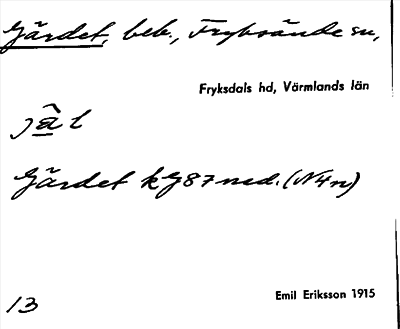 Gärdet, beb., Fryksände sn,
Fryksdals hd, Värmlands län
Gärdet kg 87 ned. (N4n)
13
Emil Eriksson 1915